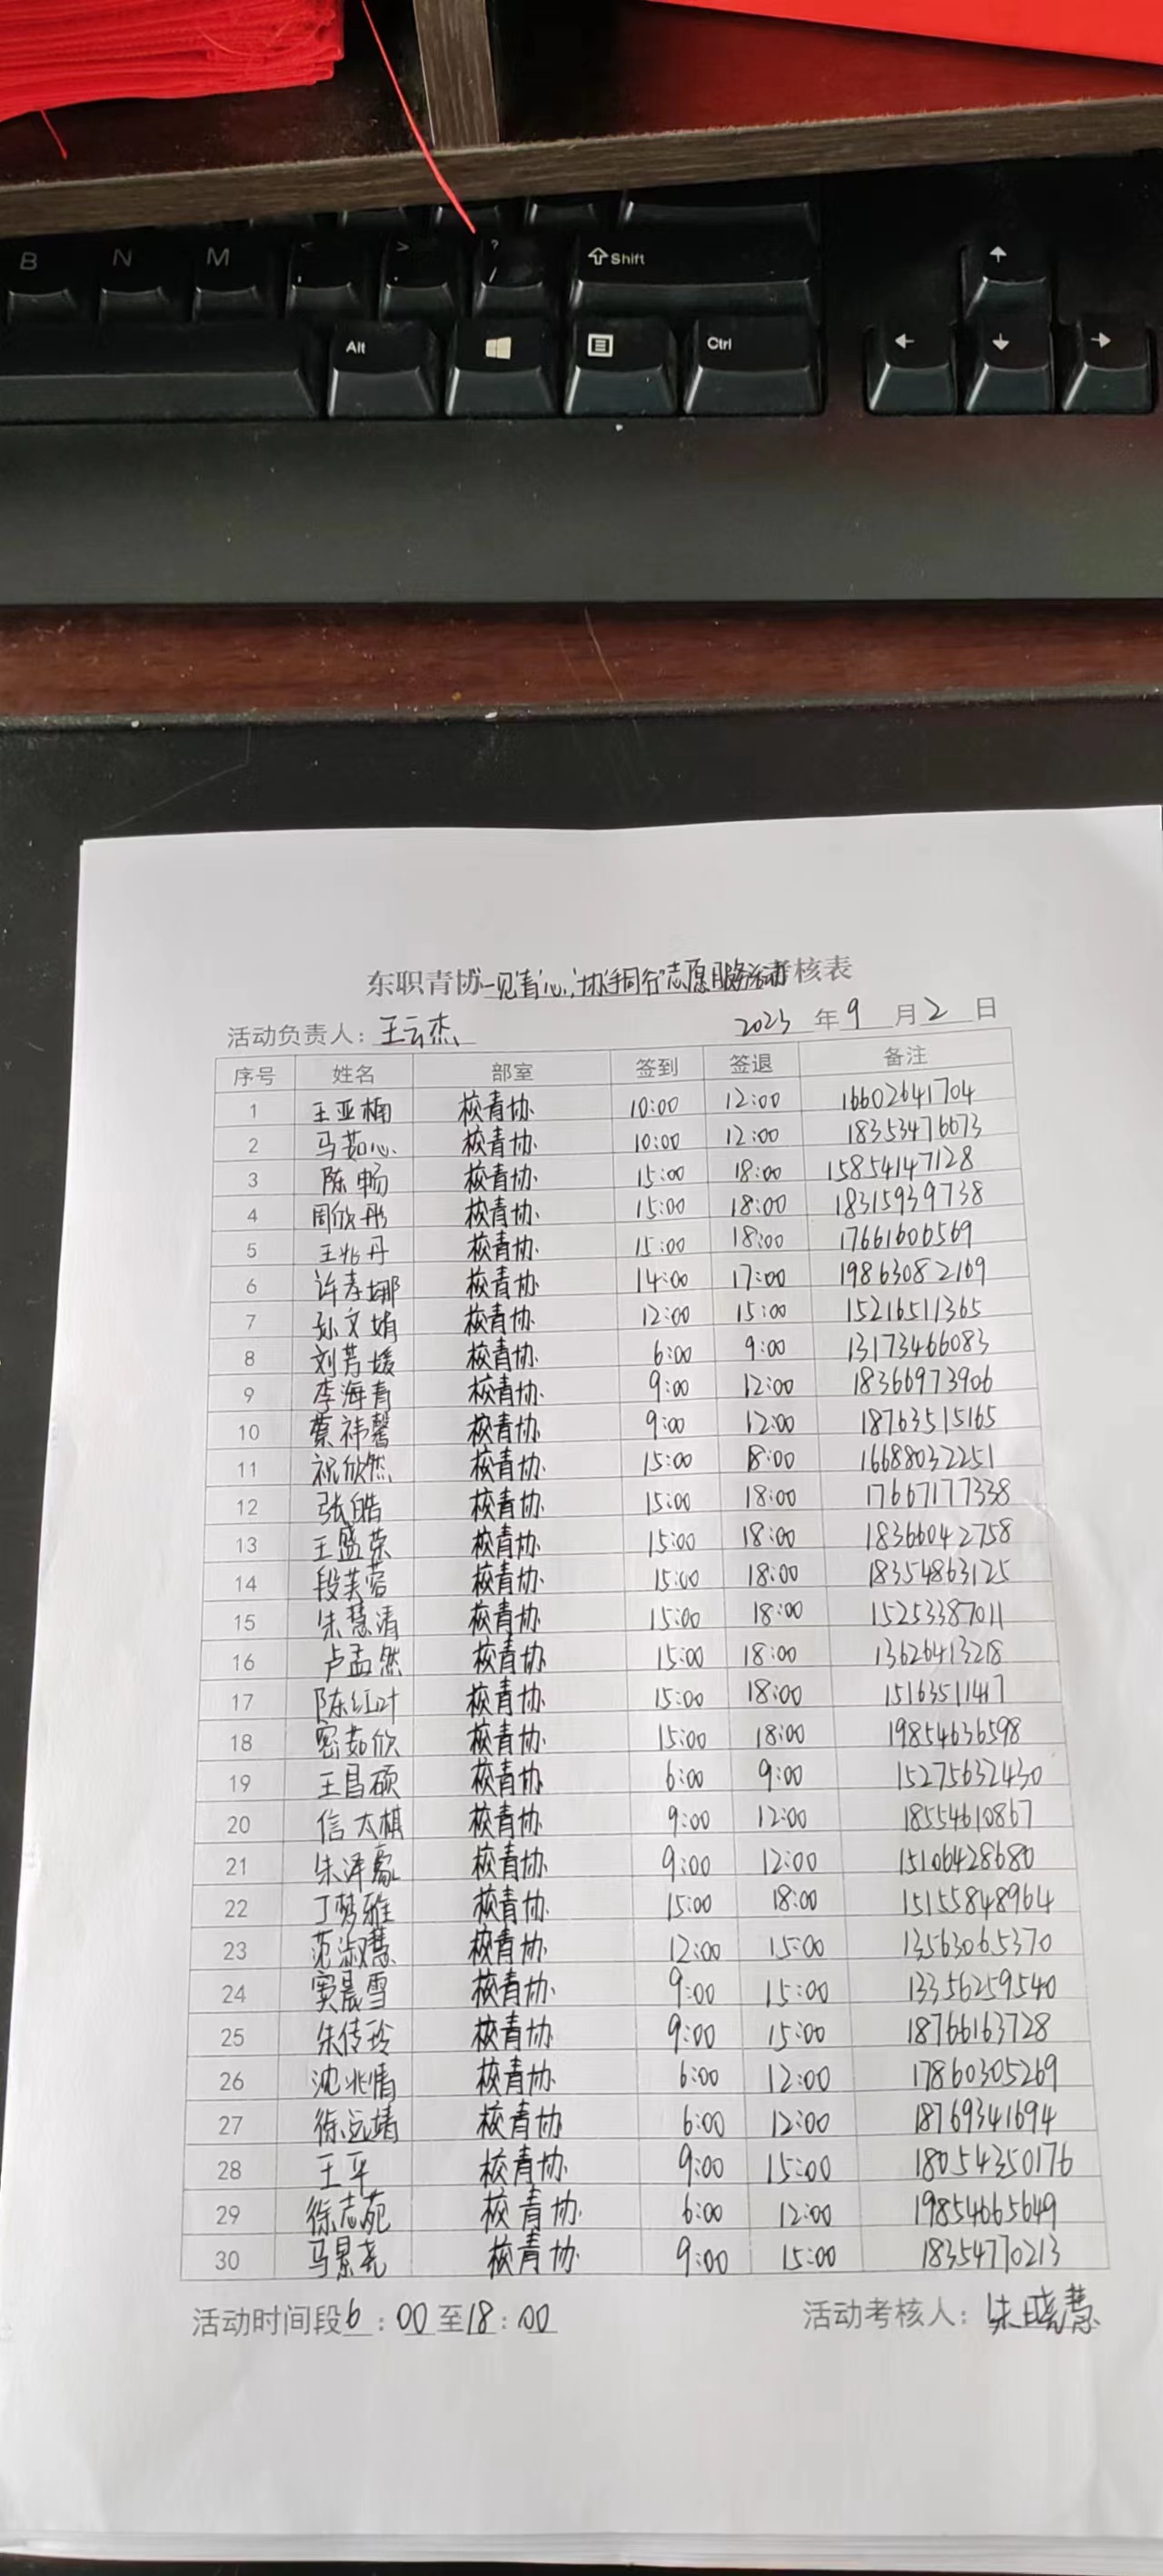 B N M < , > . ? / Shift
Alt Ctrl
东职青协"一见'青'心,'协'手同行"志愿服务活动考核表
活动负责人：王云杰 2023 年 9 月 2 日
序号 姓名 部室 签到 签退 备注
1 王亚楠 校青协 10:00 12:00 16602641704
2 马茹心 校青协 10:00 12:00 18353476673
3 陈畅 校青协 15:00 18:00 15854147128
4 周欣彤 校青协 15:00 18:00 18315939738
5 王兆丹 校青协 15:00 18:00 17661606569
6 许孝娜 校青协 14:00 17:00 19863082169
7 孙文娟 校青协 12:00 15:00 15216511365
8 刘芳媛 校青协 6:00 9:00 13173466083
9 李海青 校青协 9:00 12:00 18366973906
10 蔡祎馨 校青协 9:00 12:00 18763515165
11 祝欣然 校青协 15:00 18:00 16688032251
12 张皓 校青协 15:00 18:00 17667177338
13 王盛荣 校青协 15:00 18:00 18366042758
14 段芙蓉 校青协 15:00 18:00 18354863125
15 朱慧清 校青协 15:00 18:00 15253387011
16 卢孟然 校青协 15:00 18:00 13626413218
17 陈红叶 校青协 15:00 18:00 15163511417
18 密茹欣 校青协 15:00 18:00 19854636598
19 王昌硕 校青协 6:00 9:00 15275632430
20 信大棋 校青协 9:00 12:00 18554610867
21 朱泽豪 校青协 9:00 12:00 15106428680
22 丁梦雅 校青协 15:00 18:00 15155848964
23 范淑慧 校青协 12:00 15:00 13563065370
24 窦晨雪 校青协 9:00 15:00 13356259540
25 朱传玲 校青协 9:00 15:00 18766163728
26 沈兆倩 校青协 6:00 12:00 17860305269
27 徐远靖 校青协 6:00 12:00 18769341694
28 王平 校青协 9:00 15:00 18054350176
29 徐志苑 校青协 6:00 12:00 19854665649
30 马景尧 校青协 9:00 15:00 18354770213
活动时间段 6：00 至 18：00 活动考核人：朱晓慧